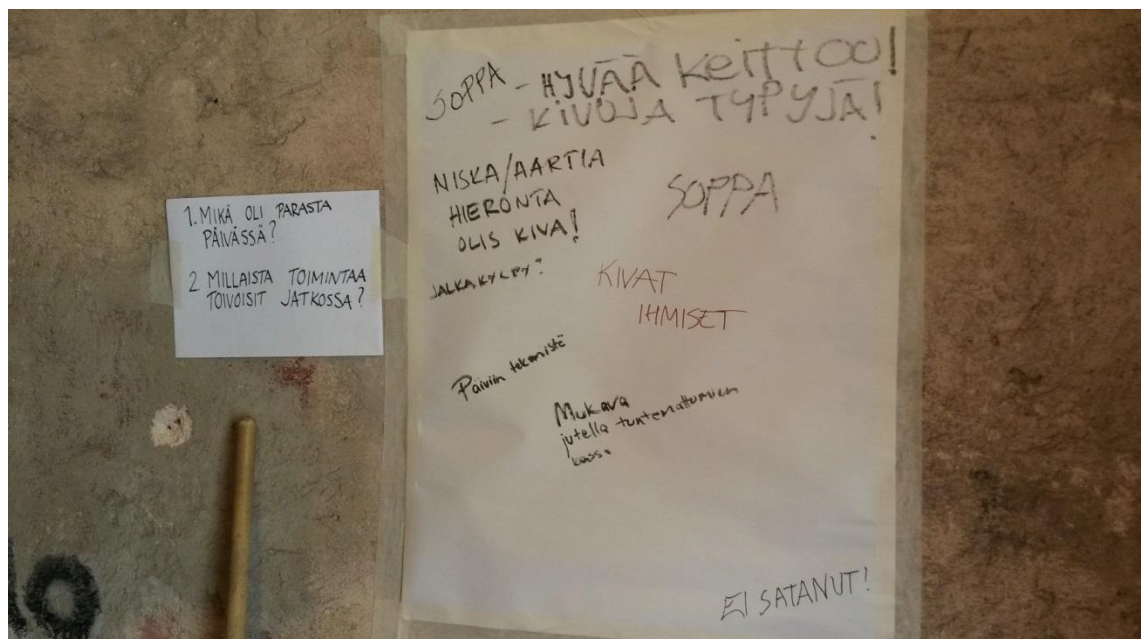 1. MIKÄ OLI PARASTA
PÄIVÄSSÄ?
2 MILLAISTA TOIMINTAA
TOIVOISIT JATKOSSA?
SOPPA
- HYVÄÄ KEITTOO!
- KIVOJA TYPYJÄ!
NISKA/AARTIA
HIERONTA
OLIS KIVA!
SOPPA
JALKAKYLPY?
KIVAT
IHMISET
Päiviin tekemistä
Mukava
jutella tuntemattomien
kanssa
EI SATANUT!